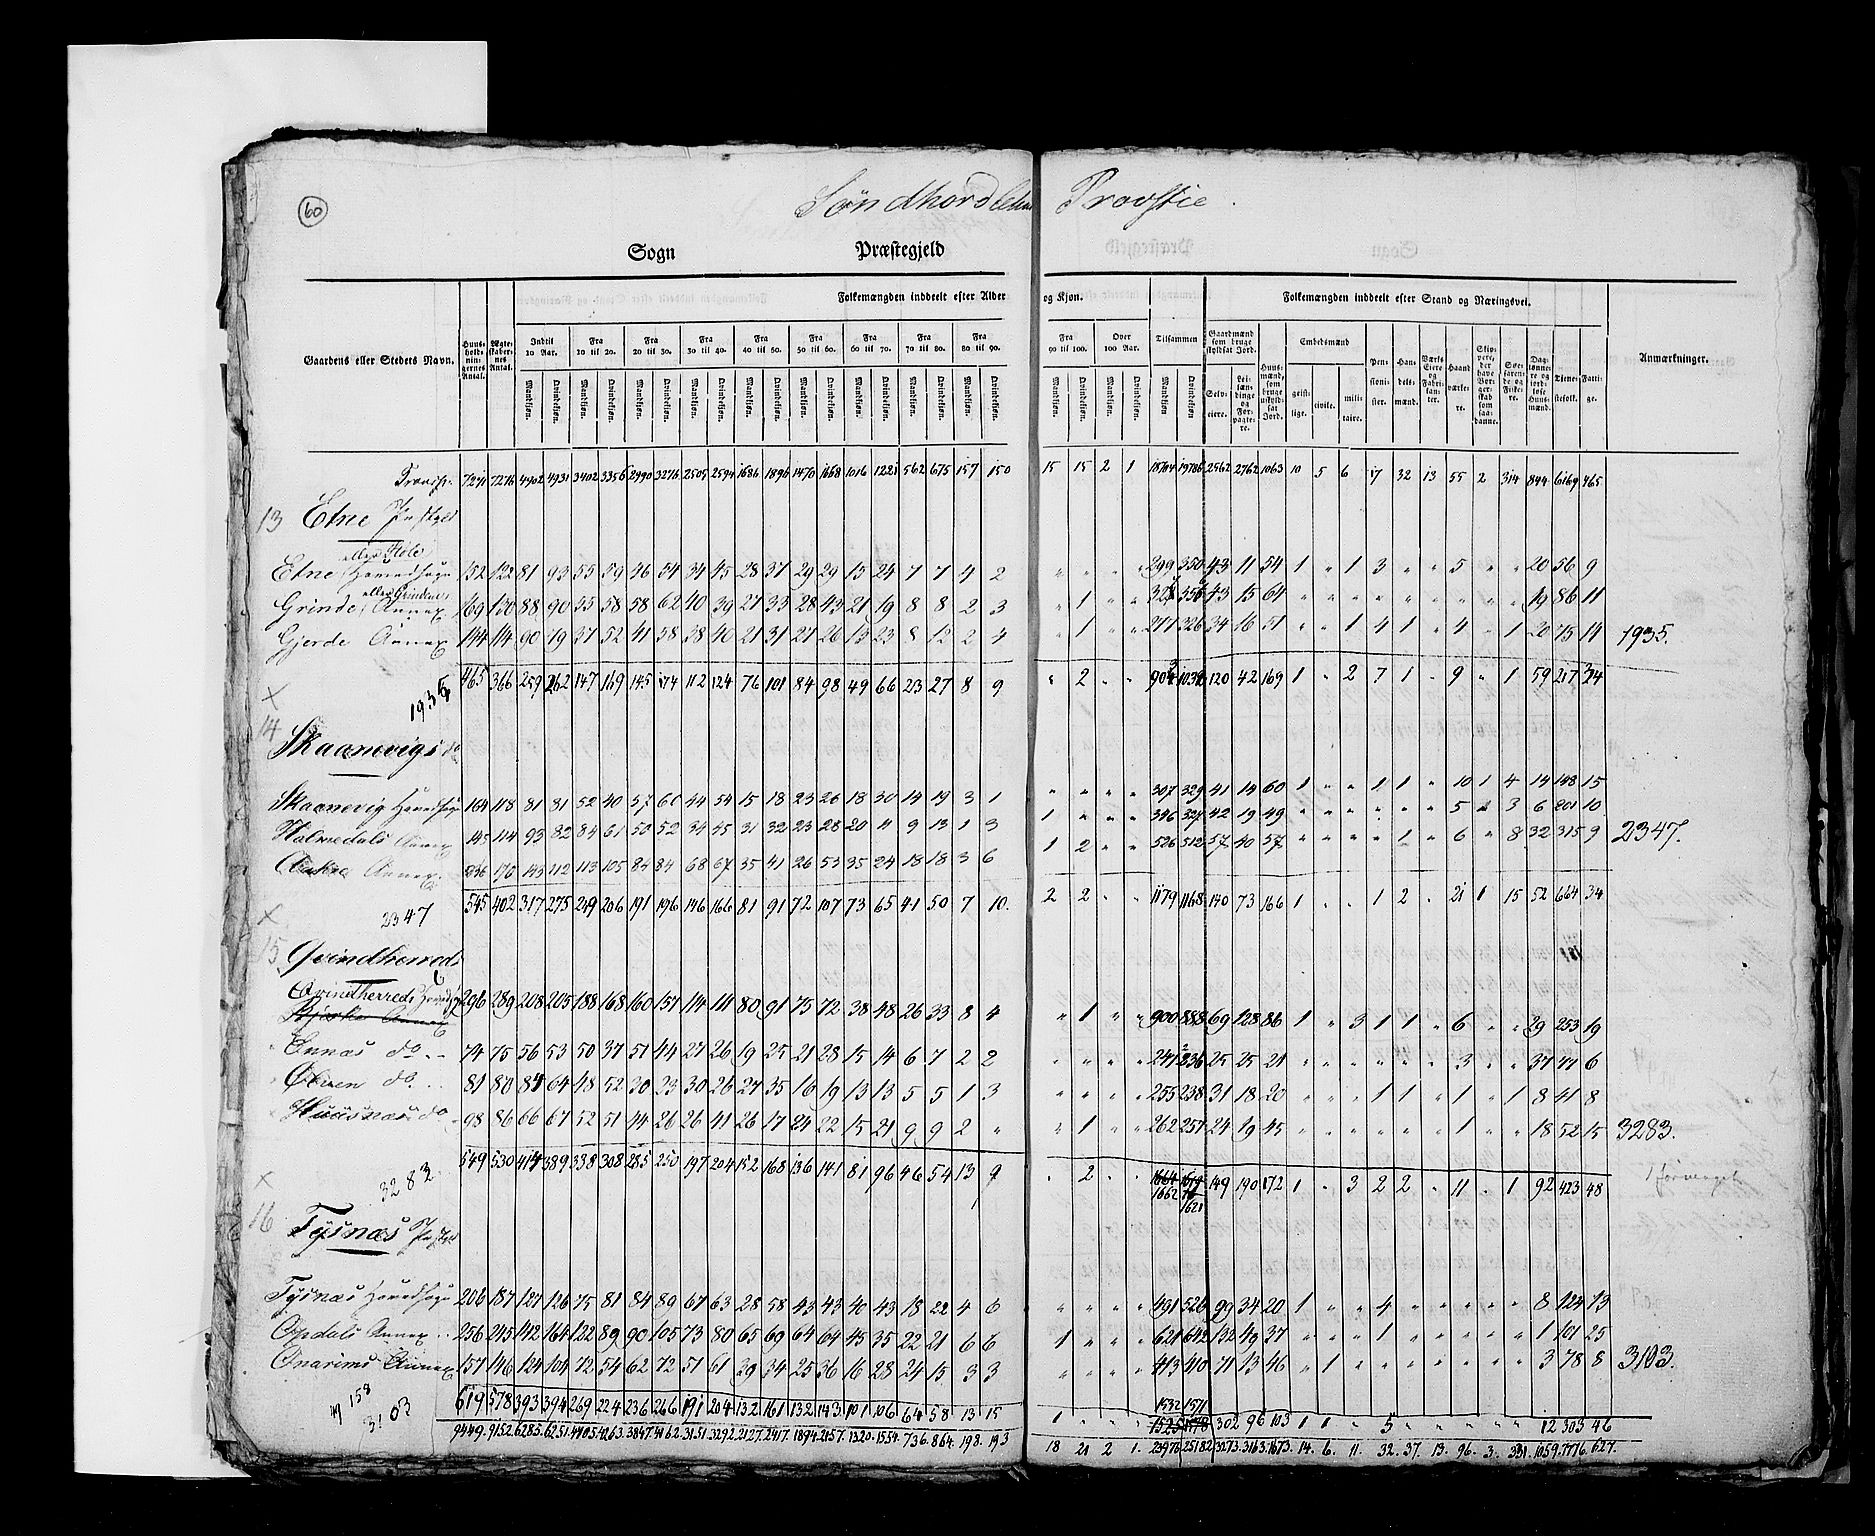 60
Søndhordlehns Provstie.
Sogn Præstegjeld
Gaardens eller Stedets Navn.
Huus-holdnin-gernes Antal.
Ægte-skaber-nes Antal.
Folkemængden inddeelt efter Alder og Kjøn.
Indtil 10 Aar. Fra 10 til 20. Fra 20 til 30. Fra 30 til 40. Fra 40 til 50. Fra 50 til 60. Fra 60 til 70. Fra 70 til 80. Fra 80 til 90. Fra 90 til 100. Over 100 Aar. Tilsammen
Mandkjøn. Qvindekjøn. Mandkjøn. Qvindekjøn. Mandkjøn. Qvindekjøn. Mandkjøn. Qvindekjøn. Mandkjøn. Qvindekjøn. Mandkjøn. Qvindekjøn. Mandkjøn. Qvindekjøn. Mandkjøn. Qvindekjøn. Mandkjøn. Qvindekjøn. Mandkjøn. Qvindekjøn. Mandkjøn. Qvindekjøn. Mandkjøn. Qvindekjøn.
Folkemængden inddeelt efter Stand og Næringsvei.
Gaardmænd som bruge skyldsat Jord.
Selv-eiere.
Lei-læn-dinge og For-pagte-re.
Huus-mænd, som bruge uskyld-sat Jord.
Embedsmænd
geist-lige. civile. mili-taire.
Pen-sioni-ster.
Han-dels-mænd.
Værks Eiere og Fabri-kan-ter.
Haand-værke-re.
Anmærkninger.
Transp. 7271 7276 4902 4931 3402 3356 2990 3276 2505 2594 1686 1896 1470 1668 1016 1221 562 675 157 150 15 15 2 1 18704 19786 2562 2762 1063 10 5 6 17 32 13 55 2 314 844 6169 465
13 Etne Præstgld
eller Støle
Etne Hovedsogn 152 122 81 93 55 59 46 54 34 45 28 37 29 29 15 24 7 7 4 2 " " " " 299 350 43 11 54 1 " 1 3 " " 5 " " 20 56 9
eller Grindem
Grinde Annex 169 130 88 90 55 58 58 62 40 39 27 33 28 43 21 19 8 8 2 3 " 1 " " 327 356 43 15 64 " " " " " " " " " 19 86 11
Gjerde Annex 144 114 90 79 37 52 41 58 38 40 21 31 27 26 13 23 8 12 2 4 " 1 " " 277 326 34 16 51 " " 1 4 1 " 4 " 1 20 75 14 1935.
465 366 259 262 147 169 145 174 112 124 76 101 84 98 49 66 23 27 8 9 " 2 " " 903 1032 120 42 169 1 " 2 7 1 " 9 " 1 59 217 34
1935
14
Skaanevigs do
Skaanevig Hovedsogn 164 118 81 81 52 40 57 60 44 54 15 18 23 26 18 30 14 19 3 1 " " " " 307 329 41 14 60 1 " " 1 1 " 10 1 4 14 148 15
Holmedals Annex 145 114 93 82 84 61 50 52 34 45 31 32 23 28 20 11 9 13 1 3 1 " " " 346 327 42 19 49 " " " " " " 5 " 3 6 201 10
Aakre Annex. 236 170 143 112 113 105 84 84 68 67 35 41 26 53 35 24 18 18 3 6 1 2 " " 526 512 57 40 57 " " " " 1 " 6 " 8 32 315 9 2347.
545 402 317 275 249 206 191 196 146 166 81 91 72 107 73 65 41 50 7 10. 2 2 " " 1179 1168 140 73 166 1 " " 1 2 " 21 1 15 52 664 34
2347
15 Qvindherreds
Qvindherreds Hovedsogn 296 289 208 205 188 168 160 157 114 111 80 91 75 72 38 48 26 33 8 4 " 1 " " 900 888 69 128 86 1 " 3 1 1 " 6 " " 29 253 19
Ennæs do 74 75 56 53 50 37 51 44 27 26 19 25 21 28 15 14 6 7 2 2 " " " " 247 236 25 25 21 " " " " " " 3 " " 37 77 6
Ølven do. 81 80 84 64 48 52 30 23 30 26 27 35 16 19 13 13 5 5 1 3 " " " " 255 238 31 18 20 " " " 1 1 " 1 " 1 8 41 8
Huusnæs do 98 86 66 67 52 51 44 26 26 41 26 17 24 22 15 21 9 9 2 " " 1 " " 262 257 24 19 45 " " " " " " 1 " " 18 52 15 3283.
549 530 414 389 338 308 285 250 197 204 152 168 136 141 81 96 46 54 13 9 " 2 " " 1662 1621 149 190 172 1 " 3 2 2 " 11 " 1 92 423 48
3283
16 Tysnæs Præstgld
Tysnæs Hovedsogn 206 187 127 126 75 81 84 89 67 63 28 58 43 43 40 43 18 22 4 6 " " " " 491 526 99 34 20 1 " " 4 " " " " " 8 124 13
Opdals Annex 256 245 142 164 122 89 90 105 73 80 65 69 64 64 45 35 22 21 6 6 1 " " " 621 642 132 49 37 " " " 1 " " " " " 1 101 25
Onarims Annex 157 146 124 104 72 54 62 72 51 61 39 34 25 36 16 28 24 15 3 3 " " " " 413 410 71 13 46 " 1 " " " " " " " 3 78 8 3103.
619 578 393 394 269 224 236 266 191 204 132 161 132 143 101 106 64 58 13 15 1 1532 1571 302 96 103 1 1 " 5 " " " " " 12 303 46
3103
9449. 9152. 6285. 6251. 4405. 4263. 3847. 4162. 3151. 3292. 2127. 2417. 1894. 2157. 1320. 1554. 736. 864. 198. 193 18 21 2 1. 23976 25182 3273. 3163. 1673. 14. 6. 11. 32. 37. 13. 96. 3. 331. 1059. 7776. 627.